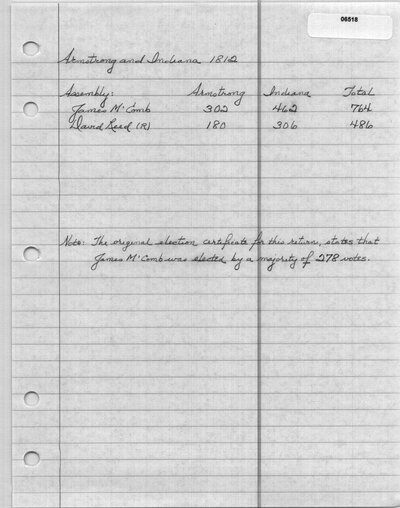 06518
Armstrong and Indiana 1812
Assembly: Armstrong Indiana Total
James McComb 302 462 764
David Reed (R) 180 306 486
Note: The original election certificate for this return, states that
James McComb was elected by a majority of 278 votes.